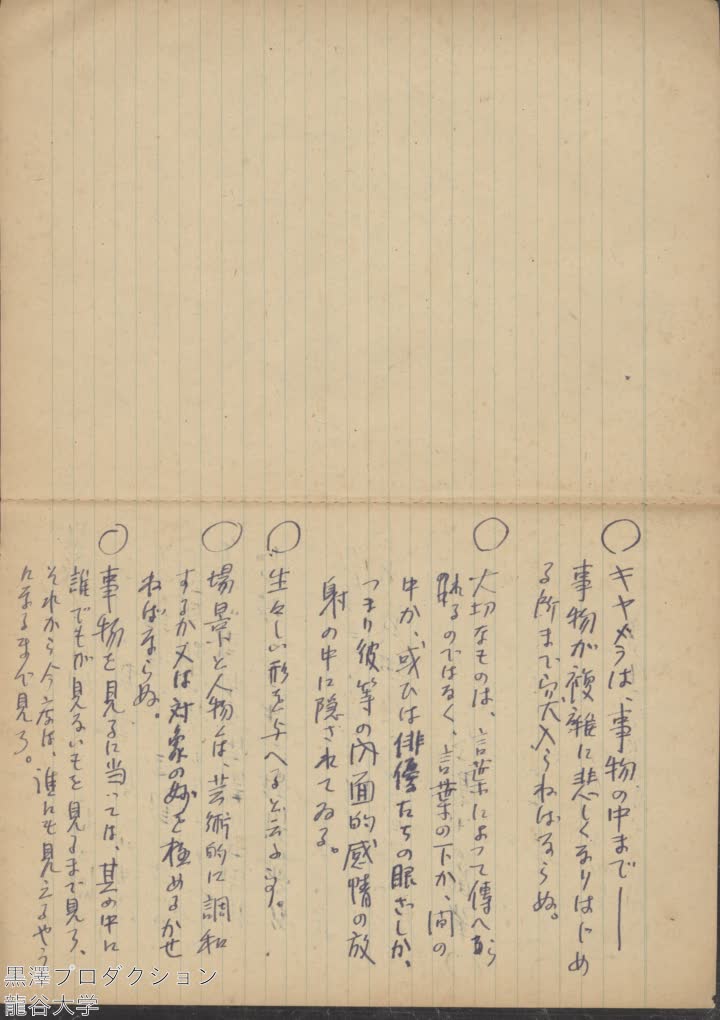 ○ キャメラは、事物の中まで──
事物が複雑に悲しくなりはじめ
る所まで穴入らねばならぬ。
○ 大切なものは、言葉によつて傳へら
れるのではなく、言葉の下か、間の
中か、或ひは俳優たちの眼ざしか、
つまり彼等の内面的感情の放
射の中に隠されてゐる。
○ “生々しい形を与へると云ふ事。„
○ 場景と人物とは、芸術的に調和
するか又は対象の妙を極めるかせ
ねばならぬ。
○ 事物を見るに当つては、其の中に
誰でもが見ないものを見るまで見ろ、
それから今度は、誰にも見えるやう
になるまで見ろ。
黒澤プロダクション
龍谷大学